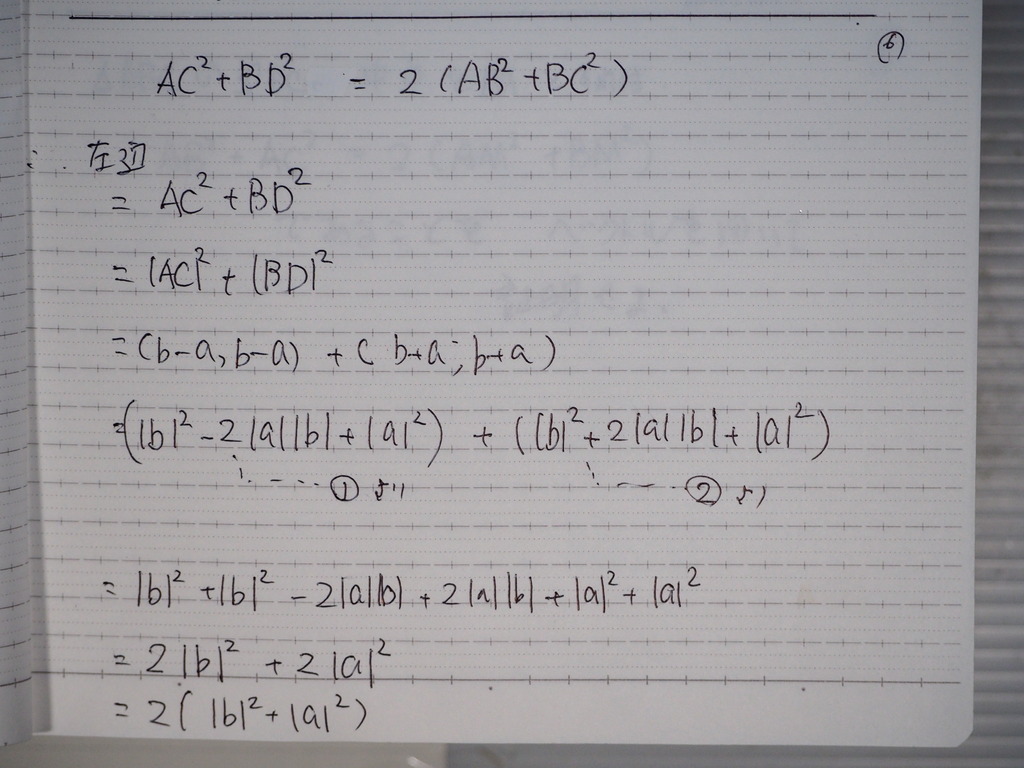 ⑥
AC² + BD² = 2 (AB² + BC²)
∴ 左辺
= AC² + BD²
= |AC|² + |BD|²
= (b-a, b-a) + (b+a, b+a)
= (|b|² - 2|a||b| + |a|²) + (|b|² + 2|a||b| + |a|²)
∵ ---- ① より ∵ --- ② より
= |b|² + |b|² - 2|a||b| + 2|a||b| + |a|² + |a|²
= 2|b|² + 2|a|²
= 2( |b|² + |a|²)